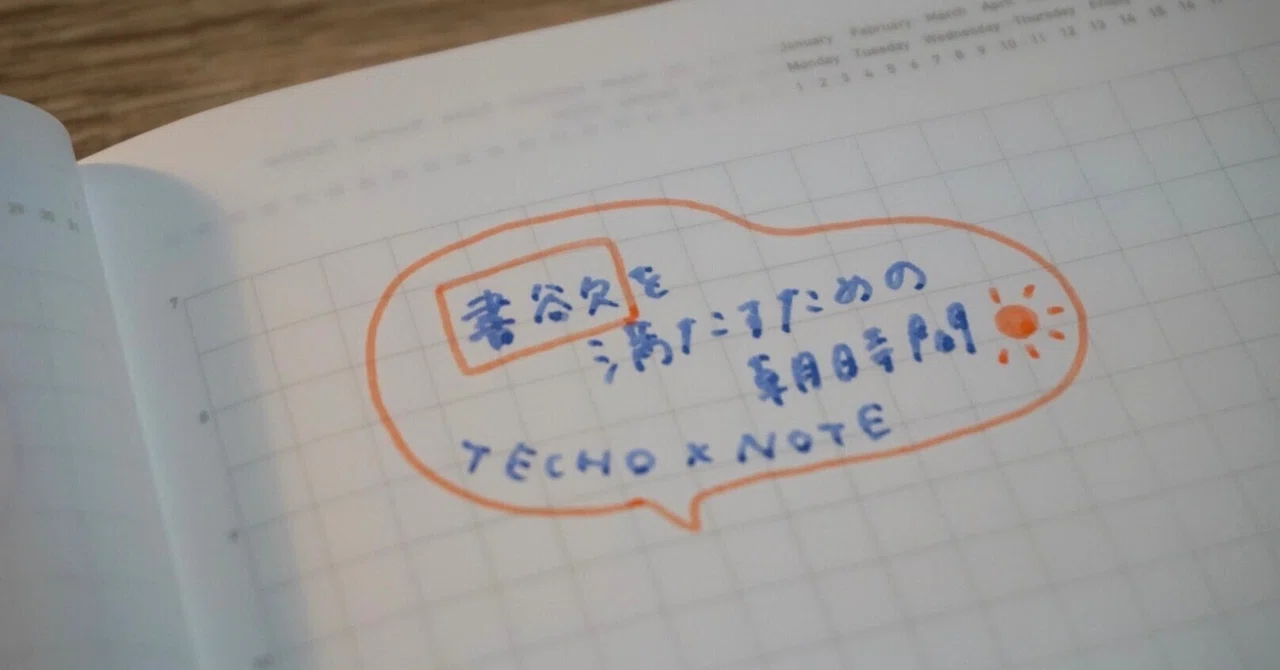 January February March April
Monday Tuesday Wednesday Thursday Friday
1 2 3 4 5 6 7 8 9 10 11 12 13 14 15 16
7
書欲を
満たすための
朝時間
TECHO × NOTE
8
9